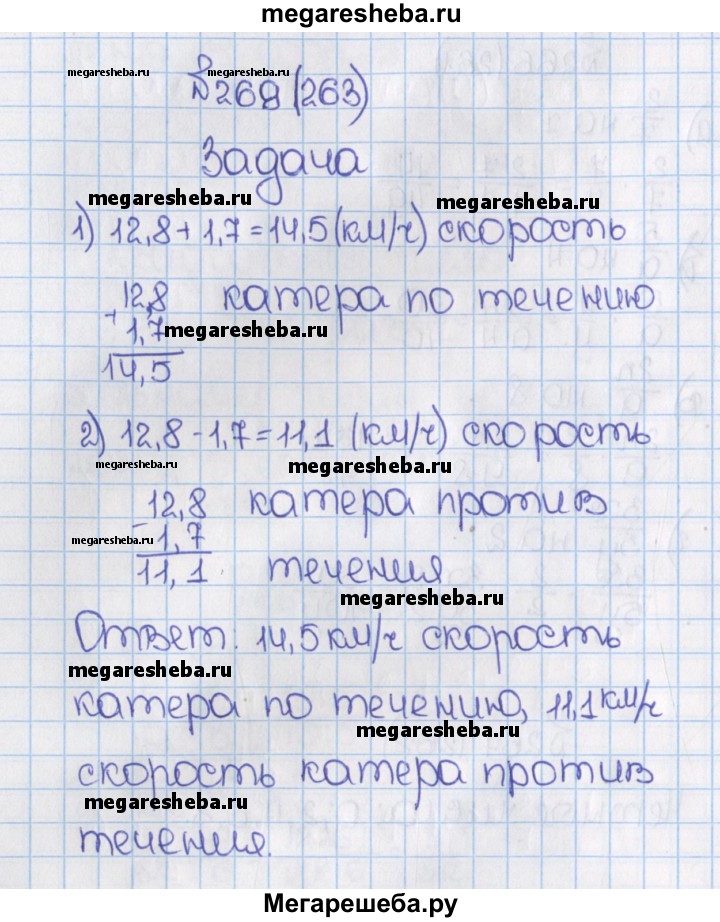 megaresheba.ru
megaresheba.ru №268 (263) megaresheba.ru
Задача
megaresheba.ru megaresheba.ru
1) 12,8 + 1,7 = 14,5 (км/ч) скорость
12,8 катера по течению
+ 1,7 megaresheba.ru
14,5
2) 12,8 - 1,7 = 11,1 (км/ч) скорость
megaresheba.ru megaresheba.ru
12,8 катера против
megaresheba.ru - 1,7
11,1 течения
megaresheba.ru
Ответ: 14,5 км/ч скорость
megaresheba.ru
катера по течению, 11,1 км/ч
megaresheba.ru
скорость катера против
megaresheba.ru
течения.
Мегарешеба.ру